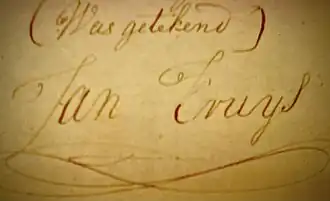 (Was getekend)
Jan Truys